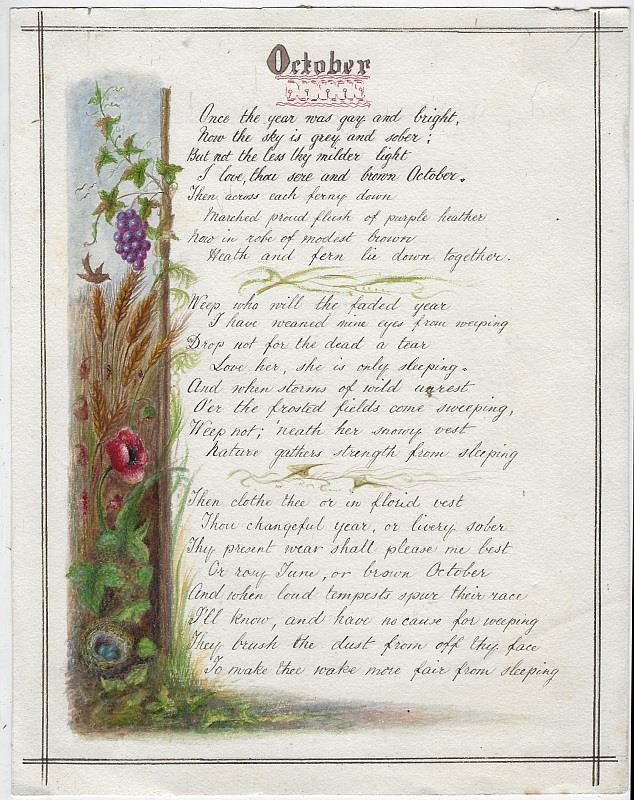 October
Once the year was gay and bright,
Now the sky is grey and sober;
But not the less thy milder light
I love, thou sere and brown October.
Then across each ferny down
Marched proud flush of purple heather
Now in robe of modest brown
Heath and fern lie down together.
Weep who will the faded year
I have weaned mine eyes from weeping
Drop not for the dead a tear
Love her, she is only sleeping.
And when storms of wild unrest
O'er the frosted fields come sweeping,
Weep not; 'neath her snowy vest
Nature gathers strength from sleeping
Then clothe thee or in florid vest
Thou changeful year, or livery sober
Thy present wear shall please me best
Or rosy June, or brown October
And when loud tempests spur their race
I'll know, and have no cause for weeping
They brush the dust from off thy face
To make thee wake more fair from sleeping